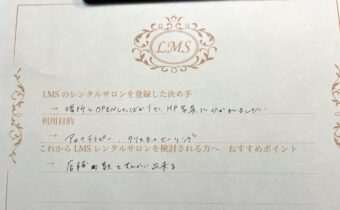 LMS
LMSのレンタルサロンを登録した決め手
→ 場所とOPENしたばかりで、HP写真にひかれました
利用目的
アロマテラピー、クリスタルヒーリング
これからLMSレンタルサロンを検討される方へ おすすめポイント
→ 店舗 数 出来る